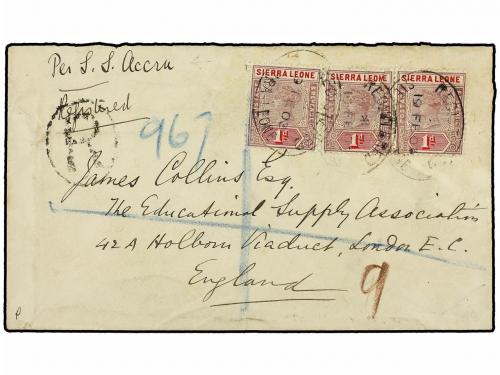 Per S. S. Accra
Registered
967
SIERRA LEONE SIERRA LEONE SIERRA LEONE
1D 1D 1D
R
James Collins Esq.
The Educational Supply Association
42A Holborn Viaduct, London E.C.
England
9
P